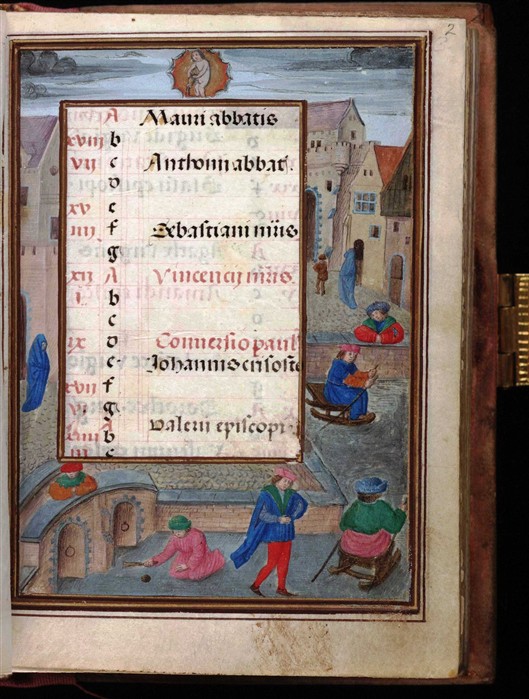 2
A Mauri abbatis
xviij b
vij c Anthonij abbat.
d
xv e
iiij f Sebastiani mris
g
xij A Vincencij mris.
i b
c
ix d Conversio pauli
e Johannis crisosto
xvij f
vi g
xiiij b Valerii episcopi
iij c